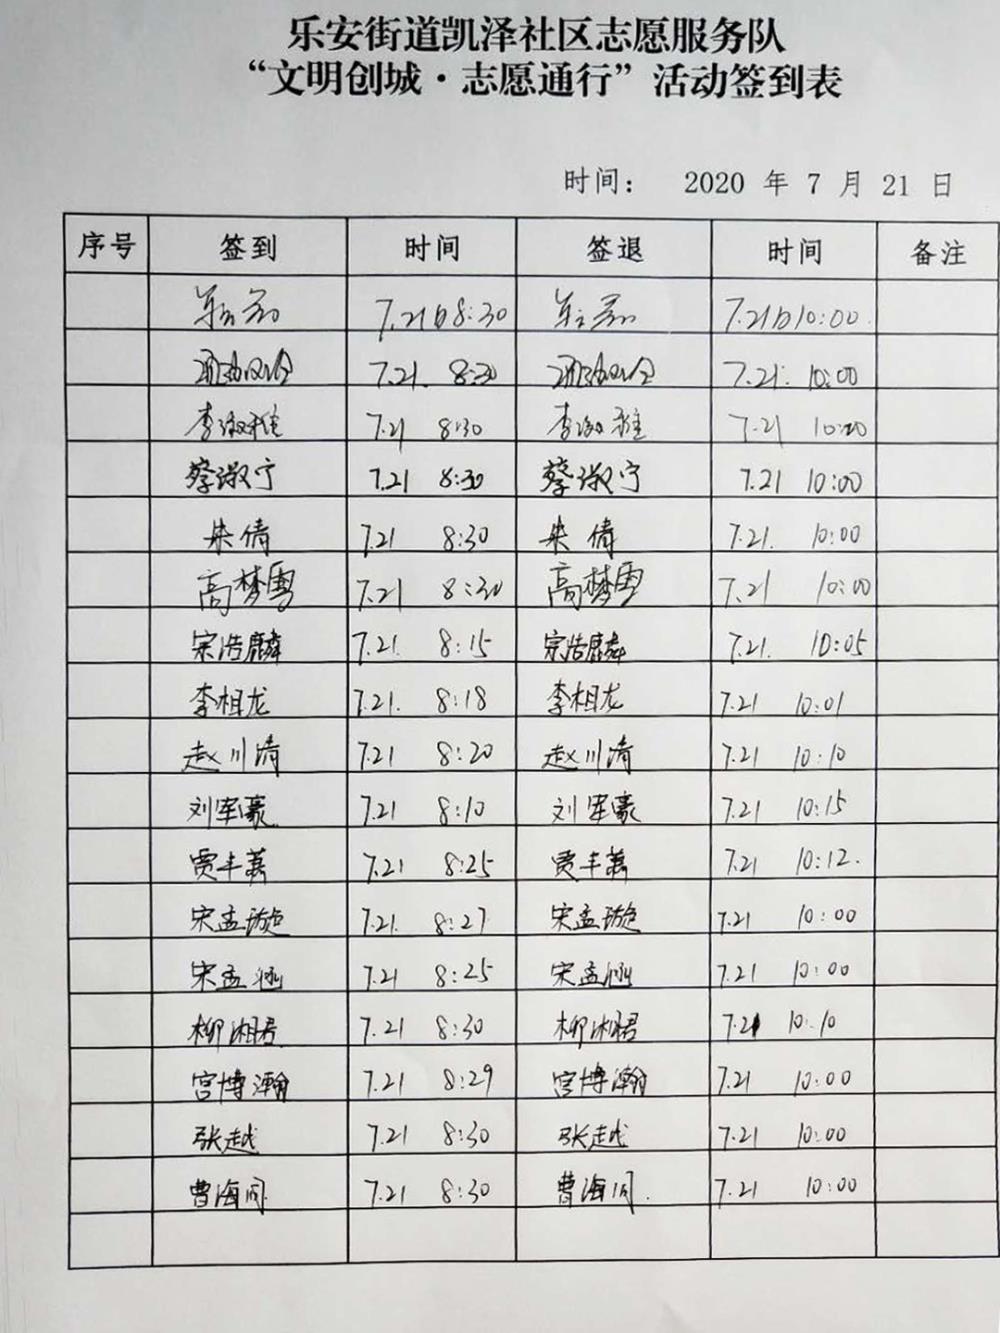 乐安街道凯泽社区志愿服务队
“文明创城·志愿通行”活动签到表
时间： 2020 年 7 月 21 日
序号 签到 时间 签退 时间 备注
7.21日8:30 7.21日10:00
7.21. 8:30 7.21. 10:00
李淑雅 7.21 8:30 李淑雅 7.21 10:00
蔡淑宁 7.21 8:30 蔡淑宁 7.21 10:00
朱倩 7.21 8:30 朱倩 7.21. 10:00
高梦雪 7.21 8:30 高梦雪 7.21 10:00
宗浩麟 7.21. 8:15 宗浩麟 7.21. 10:05
李相龙 7.21. 8:18 李相龙 7.21 10:01
赵川清 7.21 8:20 赵川清 7.21 10:10
刘军豪 7.21 8:10 刘军豪 7.21 10:15
贾丰 7.21 8:25 贾丰 7.21 10:12.
宋孟璇 7.21. 8:27 宋孟璇 7.21 10:00
宋孟涵 7.21 8:25 宋孟涵 7.21 10:00
柳湘君 7.21 8:30 柳湘君 7.21 10:10
宫博瀚 7.21 8:29 宫博瀚 7.21 10:00
张越 7.21 8:30 张越 7.21 10:00
曹海同 7.21 8:30 曹海同. 7.21 10:00